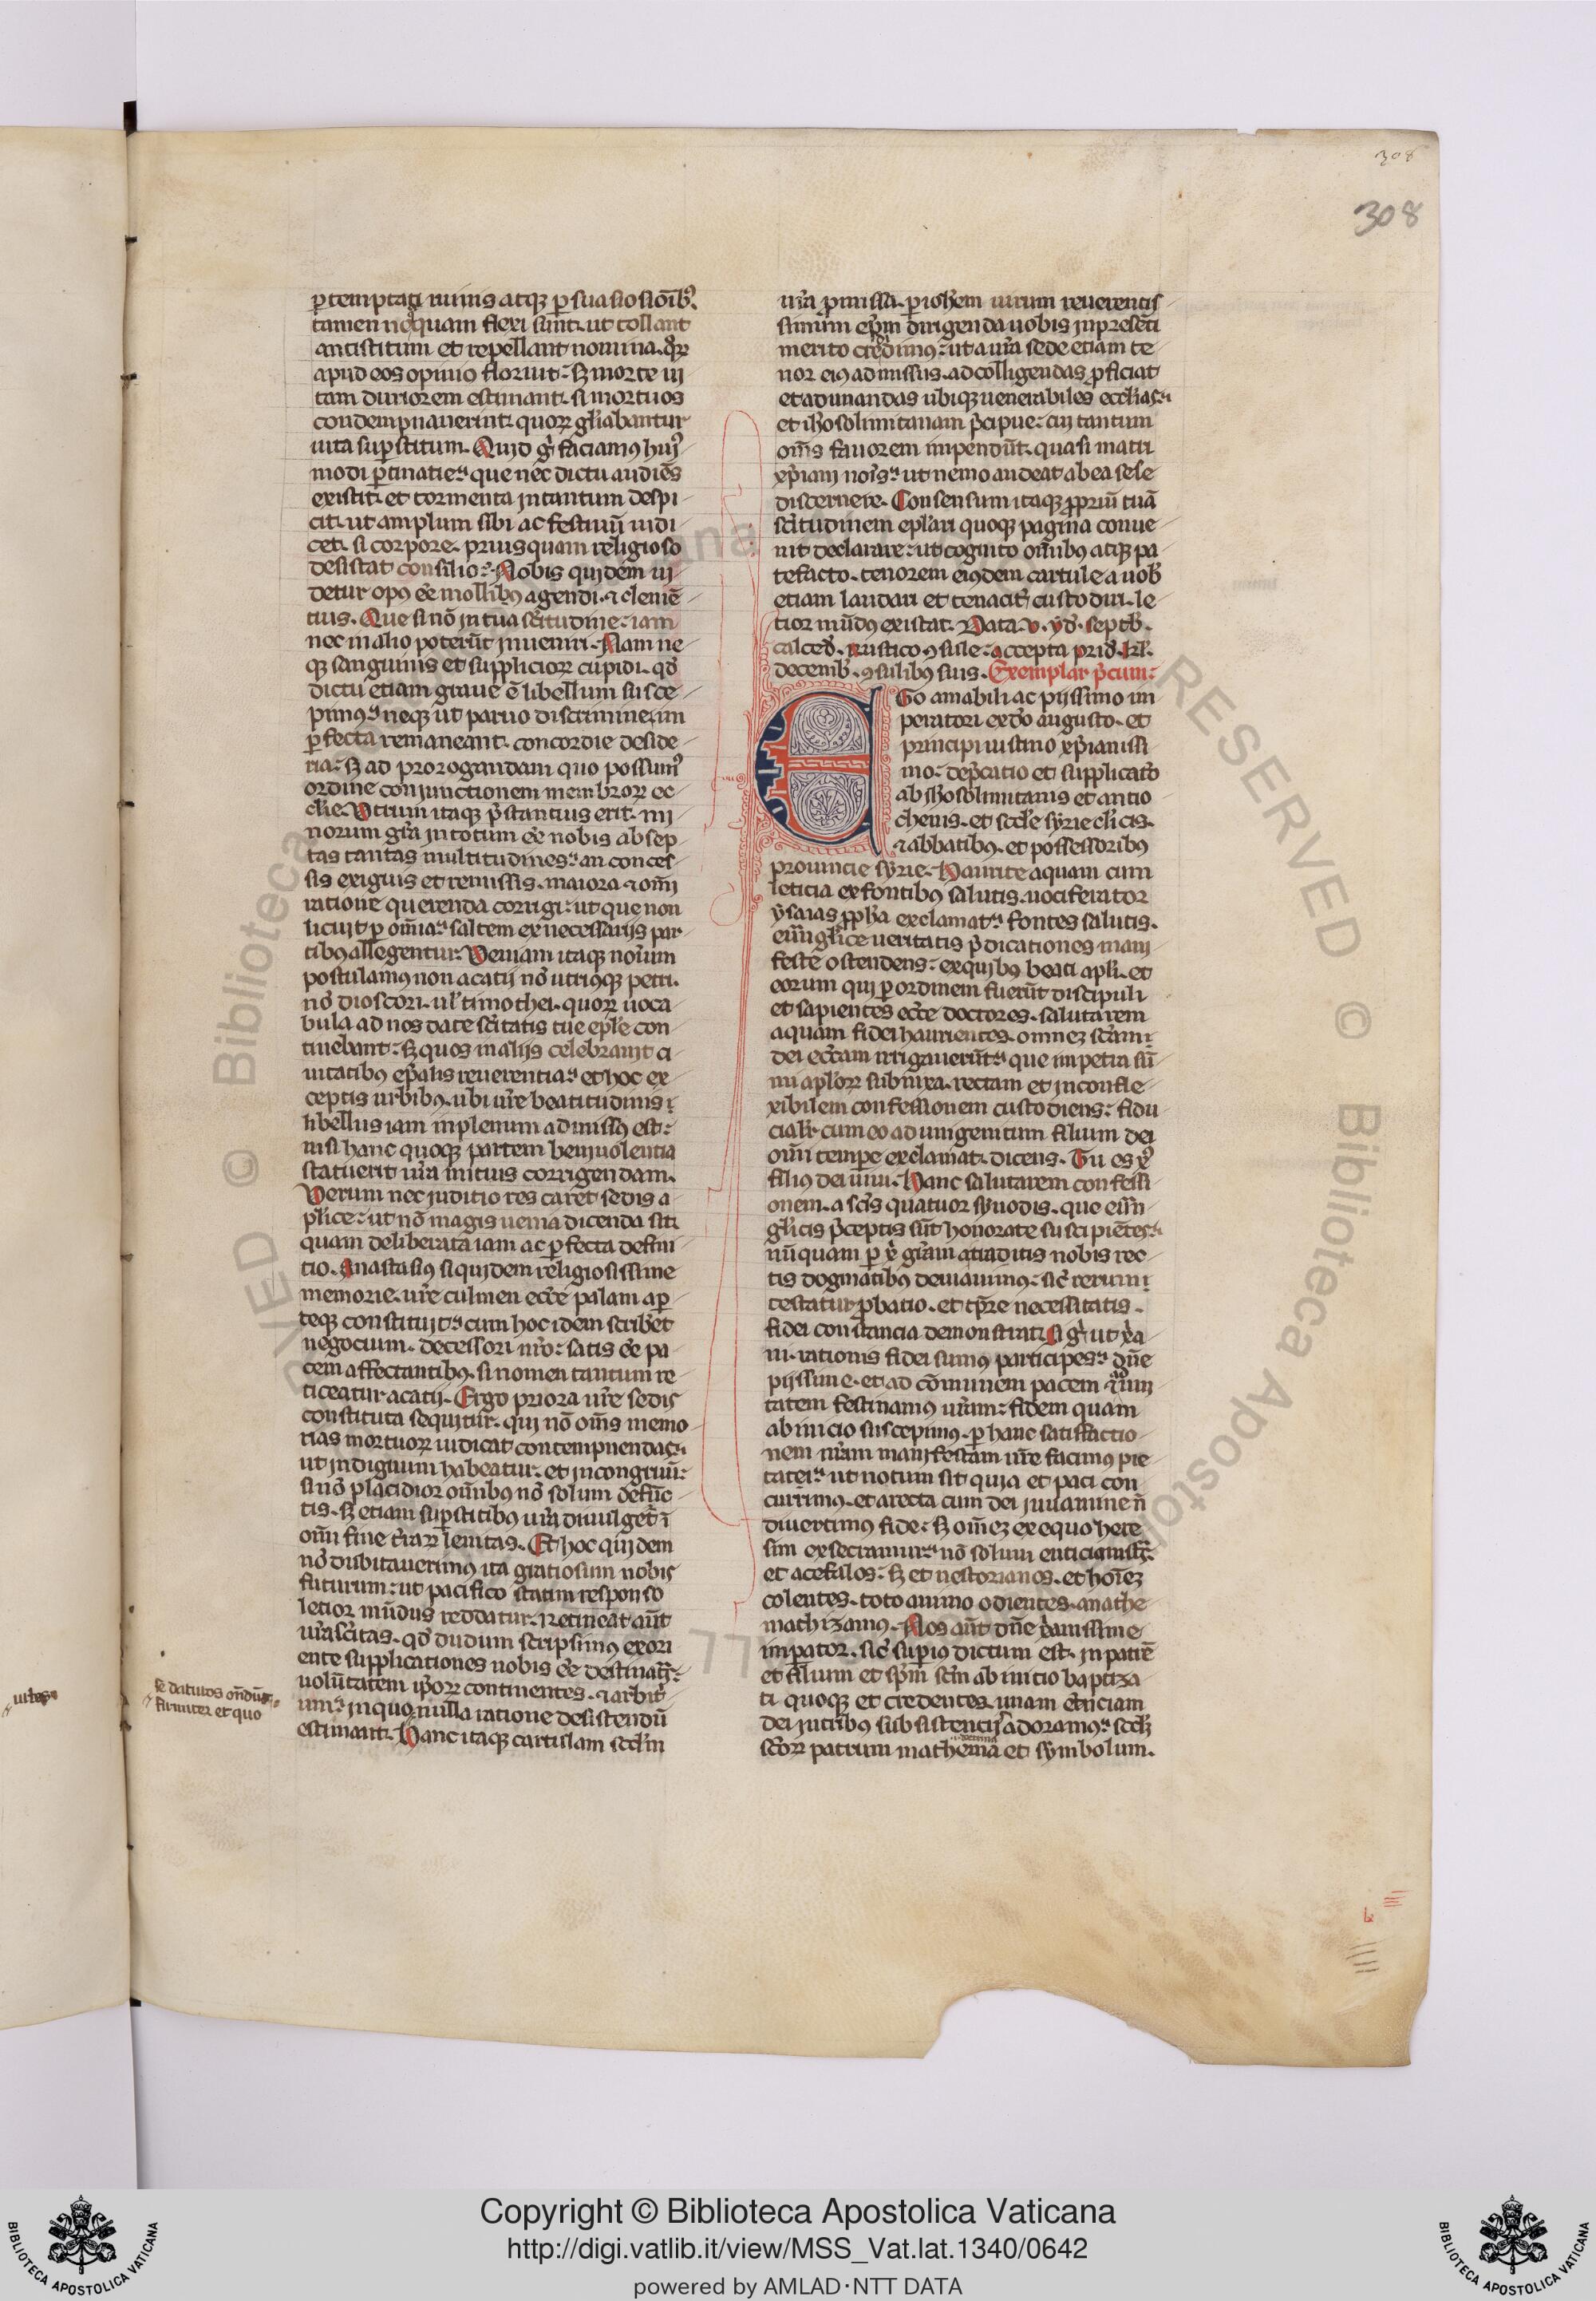 308
308
ꝑtemptati minis atqꝫ ꝑsuasiosioībꝰ.
tamen neqͣquam flexi sunt. ut tollant
antistitum et repellant nomina. qͦꝝ
apud eos opinio floruit: sꝫ morte ui
tam duriorem estimant. si mortuos
condempnauerint. quoꝝ gl̄iabantur
uita suꝑstitum. Quid gͦ faciamꝰ huiꝰ
modi ꝑtinatie: que nec dictu audiēs
existit. et tormenta intantum despi
cit. ut amplum sibi ac festiuū iudi
cet. si corpore. priusquam religioso
desistat consilio: Nobis quidem ui
detur opꝰ eē mollibꝰ agendi. ⁊ clemē
tius. Que si nō in tua sc̄itudine: iam
nec in alio poterūt inueniri. Nam ne
qꝫ sanguinis et supplicioꝝ cupidi. qd̄
dictu etiam graue ē libellum susce
pimꝰ: neqꝫ ut paruo discrimine. im
ꝑfecta remaneant. concordie deside
ria: sꝫ ad prorogandam quo possumꝰ
ordine coniunctionem membroꝝ ec
cl̄ie. Vtrum itaqꝫ p̄stantius erit. mi
norum gr̄a in totum eē nobis absep
tas tantas multitudines: an conces
sis exiguis et remissis. maiora ⁊ om̄i
ratione querenda corrigi: ut que non
licuit ꝑ om̄ia: saltem ex necessariis par
tibꝰ allegentur: Veniam itaqꝫ noīum
postulamꝰ non acatii nō utriꝰqꝫ petri.
nō dioscori. ul̄ timothei. quoꝝ uoca
bula ad nos date sc̄itatis tue ep̄le con
tinebant: sꝫ quos in aliis celebrauit ci
uitatibꝰ ep̄alis reuerentia: et hoc ex
ceptis urbibꝰ. ubi ur̄e beatitudinis
libellus iam inplenum admissꝰ est:
nisi hanc quoqꝫ partem beniuolentia
statuerit ur̄a mitius corrigendam.
Verum nec iuditio res caret sedis a
pl̄ice: ut nō magis uenia dicenda sit.
quam deliberata iam ac ꝑfecta defini
tio. Anastasiꝰ siquidem religiosissime
memorie. ur̄e culmen ecc̄e palam aꝑ
teqꝫ constituit: cum hoc idem scrib̄et
negocium. decessori nr̄o: satis eē pa
cem affectantibꝰ. si nomen tantum re
ticeatur acatij. Ergo priora ur̄e sedis
constituta sequitur. qui nō om̄s memo
rias mortuoꝝ iudicat contempnendas:
ut indignum habeatur. et incongruū:
si nō placidior om̄ibꝰ nō solum defūc
tis. sꝫ etiam suꝑstitibꝰ ur̄a diuulget̄ ī
om̄i fine t̄raꝝ lenitas. Et hoc quidem
nō dubitauerimꝰ ita gratiosum nobis
futurum: ut pacifico statim responso
letior mūdus reddatur. Retineat aūt
ur̄a sc̄itas. qd̄ dudum scripsimꝰ exori
ente supplicationes nobis eē destinatꝝ:
uolūtatem ip̄oꝝ continentes. ⁊ arbitͥ
um: in quo nulla ratione desistendū
estimant. Hanc itaqꝫ cartulam sc̄t̄lm
se datiuos on̄dūt
firmiter et quo
ur̄a p̄missa. ꝑ ioh̄em uirum reuerentis
simum ep̄m dirigenda uobis inpresēti
merito credimꝰ: ut a ur̄a sede etiam te
nor eiꝰ admissus. ad colligendas ꝓficiat
et adunandas ubiqꝫ uenerabiles eccl̄ias:
et ih̄osolimitanam p̄cipue: cui tantum
om̄s fauorem impendūt. quasi matri
xp̄iani noīs: ut nemo audeat ab ea sese
discernere. Consensum itaqꝫ ꝓpriū tuā
sc̄itudinem ep̄lari quoqꝫ pagina conue
nit declarare: ut cognito om̄ibꝰ atqꝫ pa
tefacto. tenorem eiꝰdem cartule a uob̄
etiam laudari et tenacit̄ custodiri. le
tior mūdꝰ existat. Data. v. yd̄. septb̄.
calced̄. Rustico ꝯsule: accepta prid̄. kl̄.
decemb̄. ꝯsulibꝰ suis. Exemplar p̄cum:
EGo amabili ac piissimo im
peratori ex dō augusto. et
principi iustino xp̄ianissi
mo: dep̄catio et supplicatō
ab ih̄osolimitanis et antio
chenis. et sc̄de syrie cl̄icis.
⁊ abbatibꝰ. et possessoribꝰ
prouincie syrie. Haurite aquam cum
leticia ex fontibꝰ salutis. uociferator
ysaias ꝓph̄a exclamat: fontes salutis.
euuāgl̄ice ueritatis p̄dicationes mani
feste ostendens: ex quibꝰ beati apl̄i. et
eorum qui ꝑ ordinem fuerūt discipuli
et sapientes ecc̄e doctores. salutarem
aquam fidei haurientes. omneꝫ sc̄am
dei ecc̄am irrigauerūt: que in petra sū
mi apl̄oꝝ subnixa. rectam et inconfle
xibilem confessionem custodiens: fidu
cialit̄ cum eo ad unigenitum filium dei
om̄i tempe exclamat. dicens. Tu es xp̄c
filiꝰ dei uiui. Hanc salutarem confessi
onem. a sc̄is quatuor synodis. que euāg
gl̄icis p̄ceptis sūt honorate suscipiētes:
nūquam ꝑ xp̄i gr̄am a traditis nobis rec
tis dogmatibꝰ deuiauimꝰ: sic̄ rerum
testatur ꝓbatio. et tp̄re necessitatis.
fidei constancia demonstrat. Si gͦ ut xp̄ia
ni. rationis fidei sumꝰ participes: dn̄e
piissime. et ad cōmunem pacem ⁊ uni
tatem festinamꝰ ur̄am: fidem quam
ab inicio suscepimꝰ. ꝑ hanc satisfactio
nem nr̄am manifestam ur̄e facimꝰ pie
tatei: ut notum sit quia et paci con
currimꝰ. et a recta cum dei iuuamine n̄
diuertimꝰ fide: sꝫ om̄eꝫ ex equo here
sim exsecramur: nō solum euticianistꝝ:
et acefalos: sꝫ et nestorianos. et hoīeꝫ
colentes. toto animo odientes. anathe
mathizamꝰ. Nos aūt dn̄e xp̄ianissime
imꝑator. sic̄ suꝑius dictum est. in patrē
et filium et sp̄m sc̄m ab initio baptiza
ti quoqꝫ et credentes. unam essēnciam
dei in tribꝰ subsistenciis adoramꝰ: sc̄d̄ꝫ
sc̄oꝝ patrum mathema et symbolum.
Copyright © Biblioteca Apostolica Vaticana
http://digi.vatlib.it/view/MSS_Vat.lat.1340/0642
powered by AMLAD·NTT DATA
BIBLIOTECA APOSTOLICA VATICANA
BIBLIOTECA APOSTOLICA VATICANA